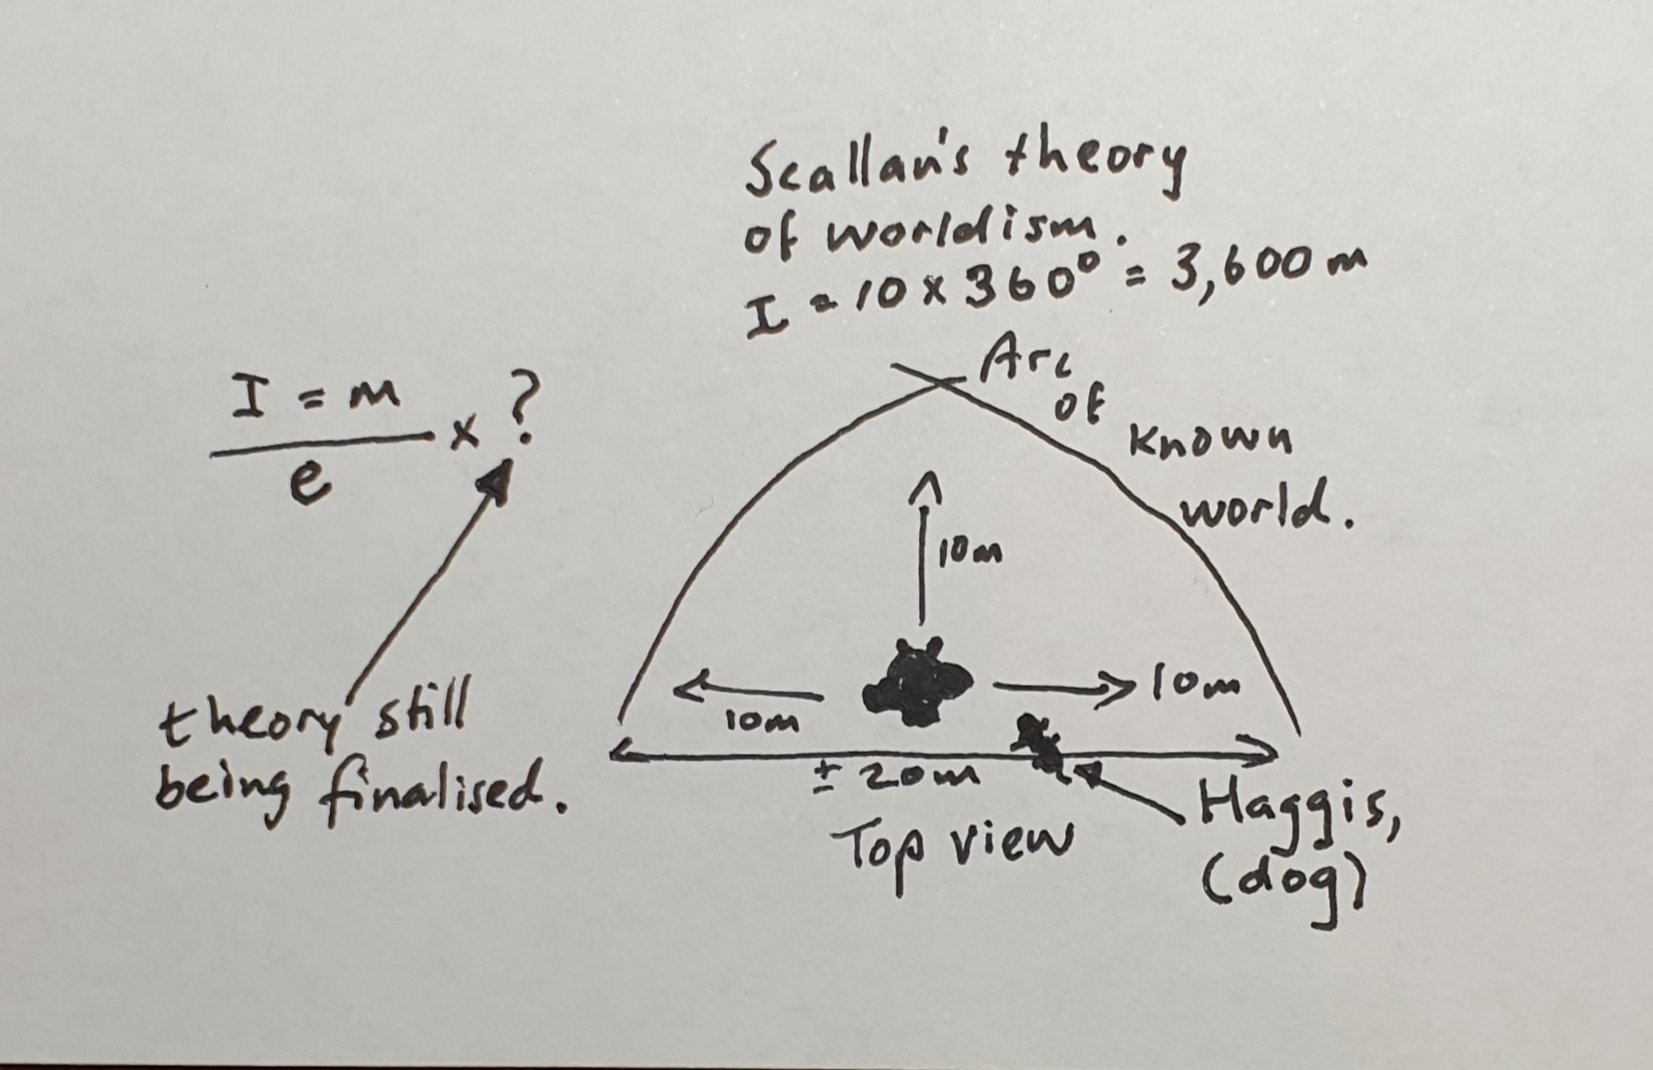 Scallan's theory
of worldism.
I = 10 x 360° = 3,600 m
I = m
e
x ?
theory still
being finalised.
Arc
of
known
world.
10m
10m
10m
± 20m
Top view
Haggis,
(dog)